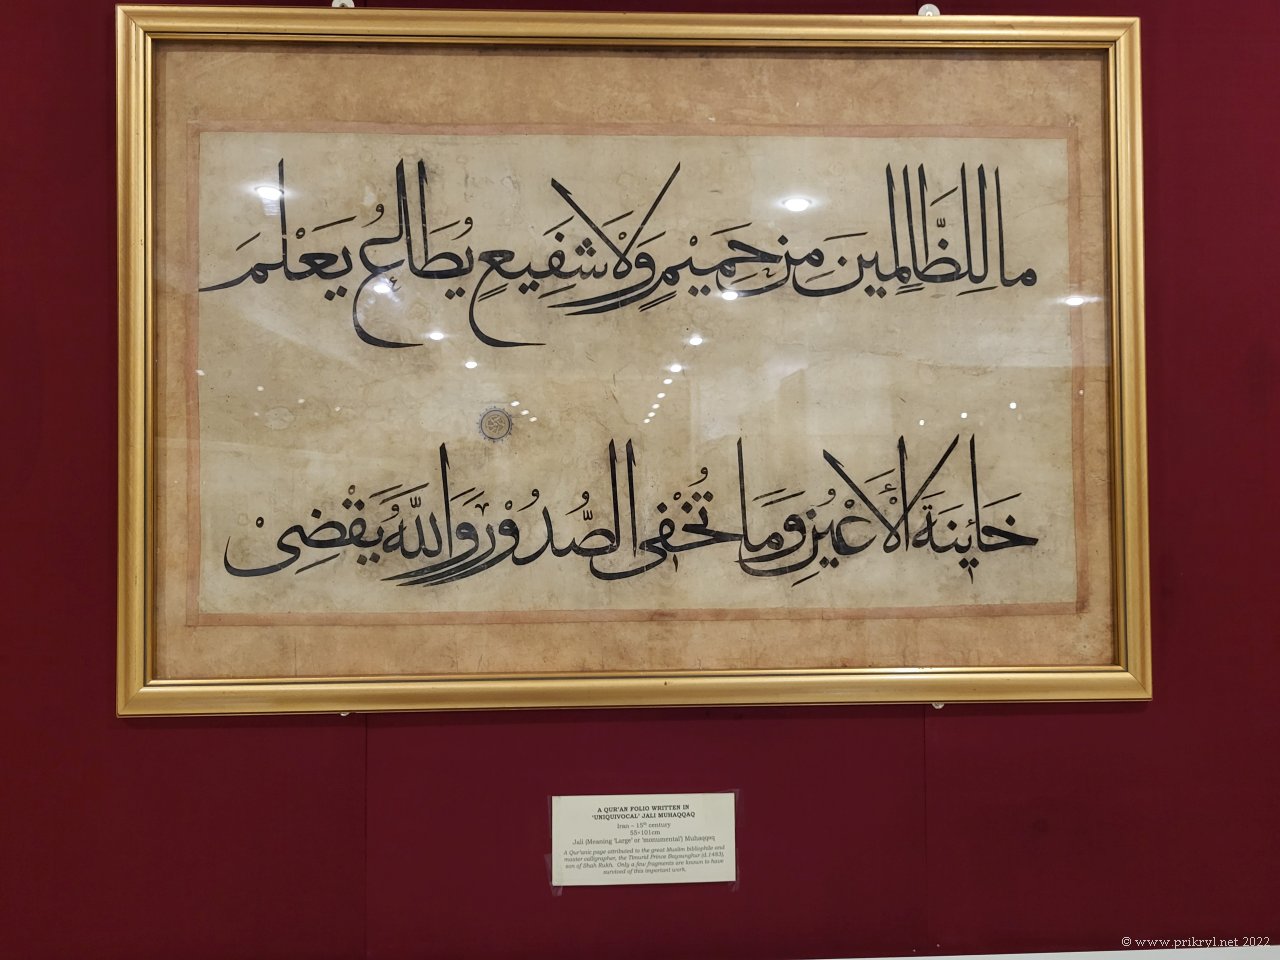 مَا لِلظَّالِمِينَ مِنْ حَمِيْمٍ وَلَا شَفِيعٍ يُطَاعُ يَعْلَمُ
خَائِنَةَ الْأَعْيُنِ وَمَا تُخْفِى الصُّدُوْرُ وَاللَّهُ يَقْضِىْ
A QUR'AN FOLIO WRITTEN IN
'UNIQUIVOCAL' JALI MUHAQQAQ
Iran ~ 15th century
55×101cm
Jali (Meaning 'Large' or 'monumental') Muhaqqaq
A Qur'anic page attributed to the great Muslim bibliophile and
master calligrapher, the Timurid Prince Baysunghur (d.1433),
son of Shah Rukh. Only a few fragments are known to have
survived of this important work.
© www.prikryl.net 2022